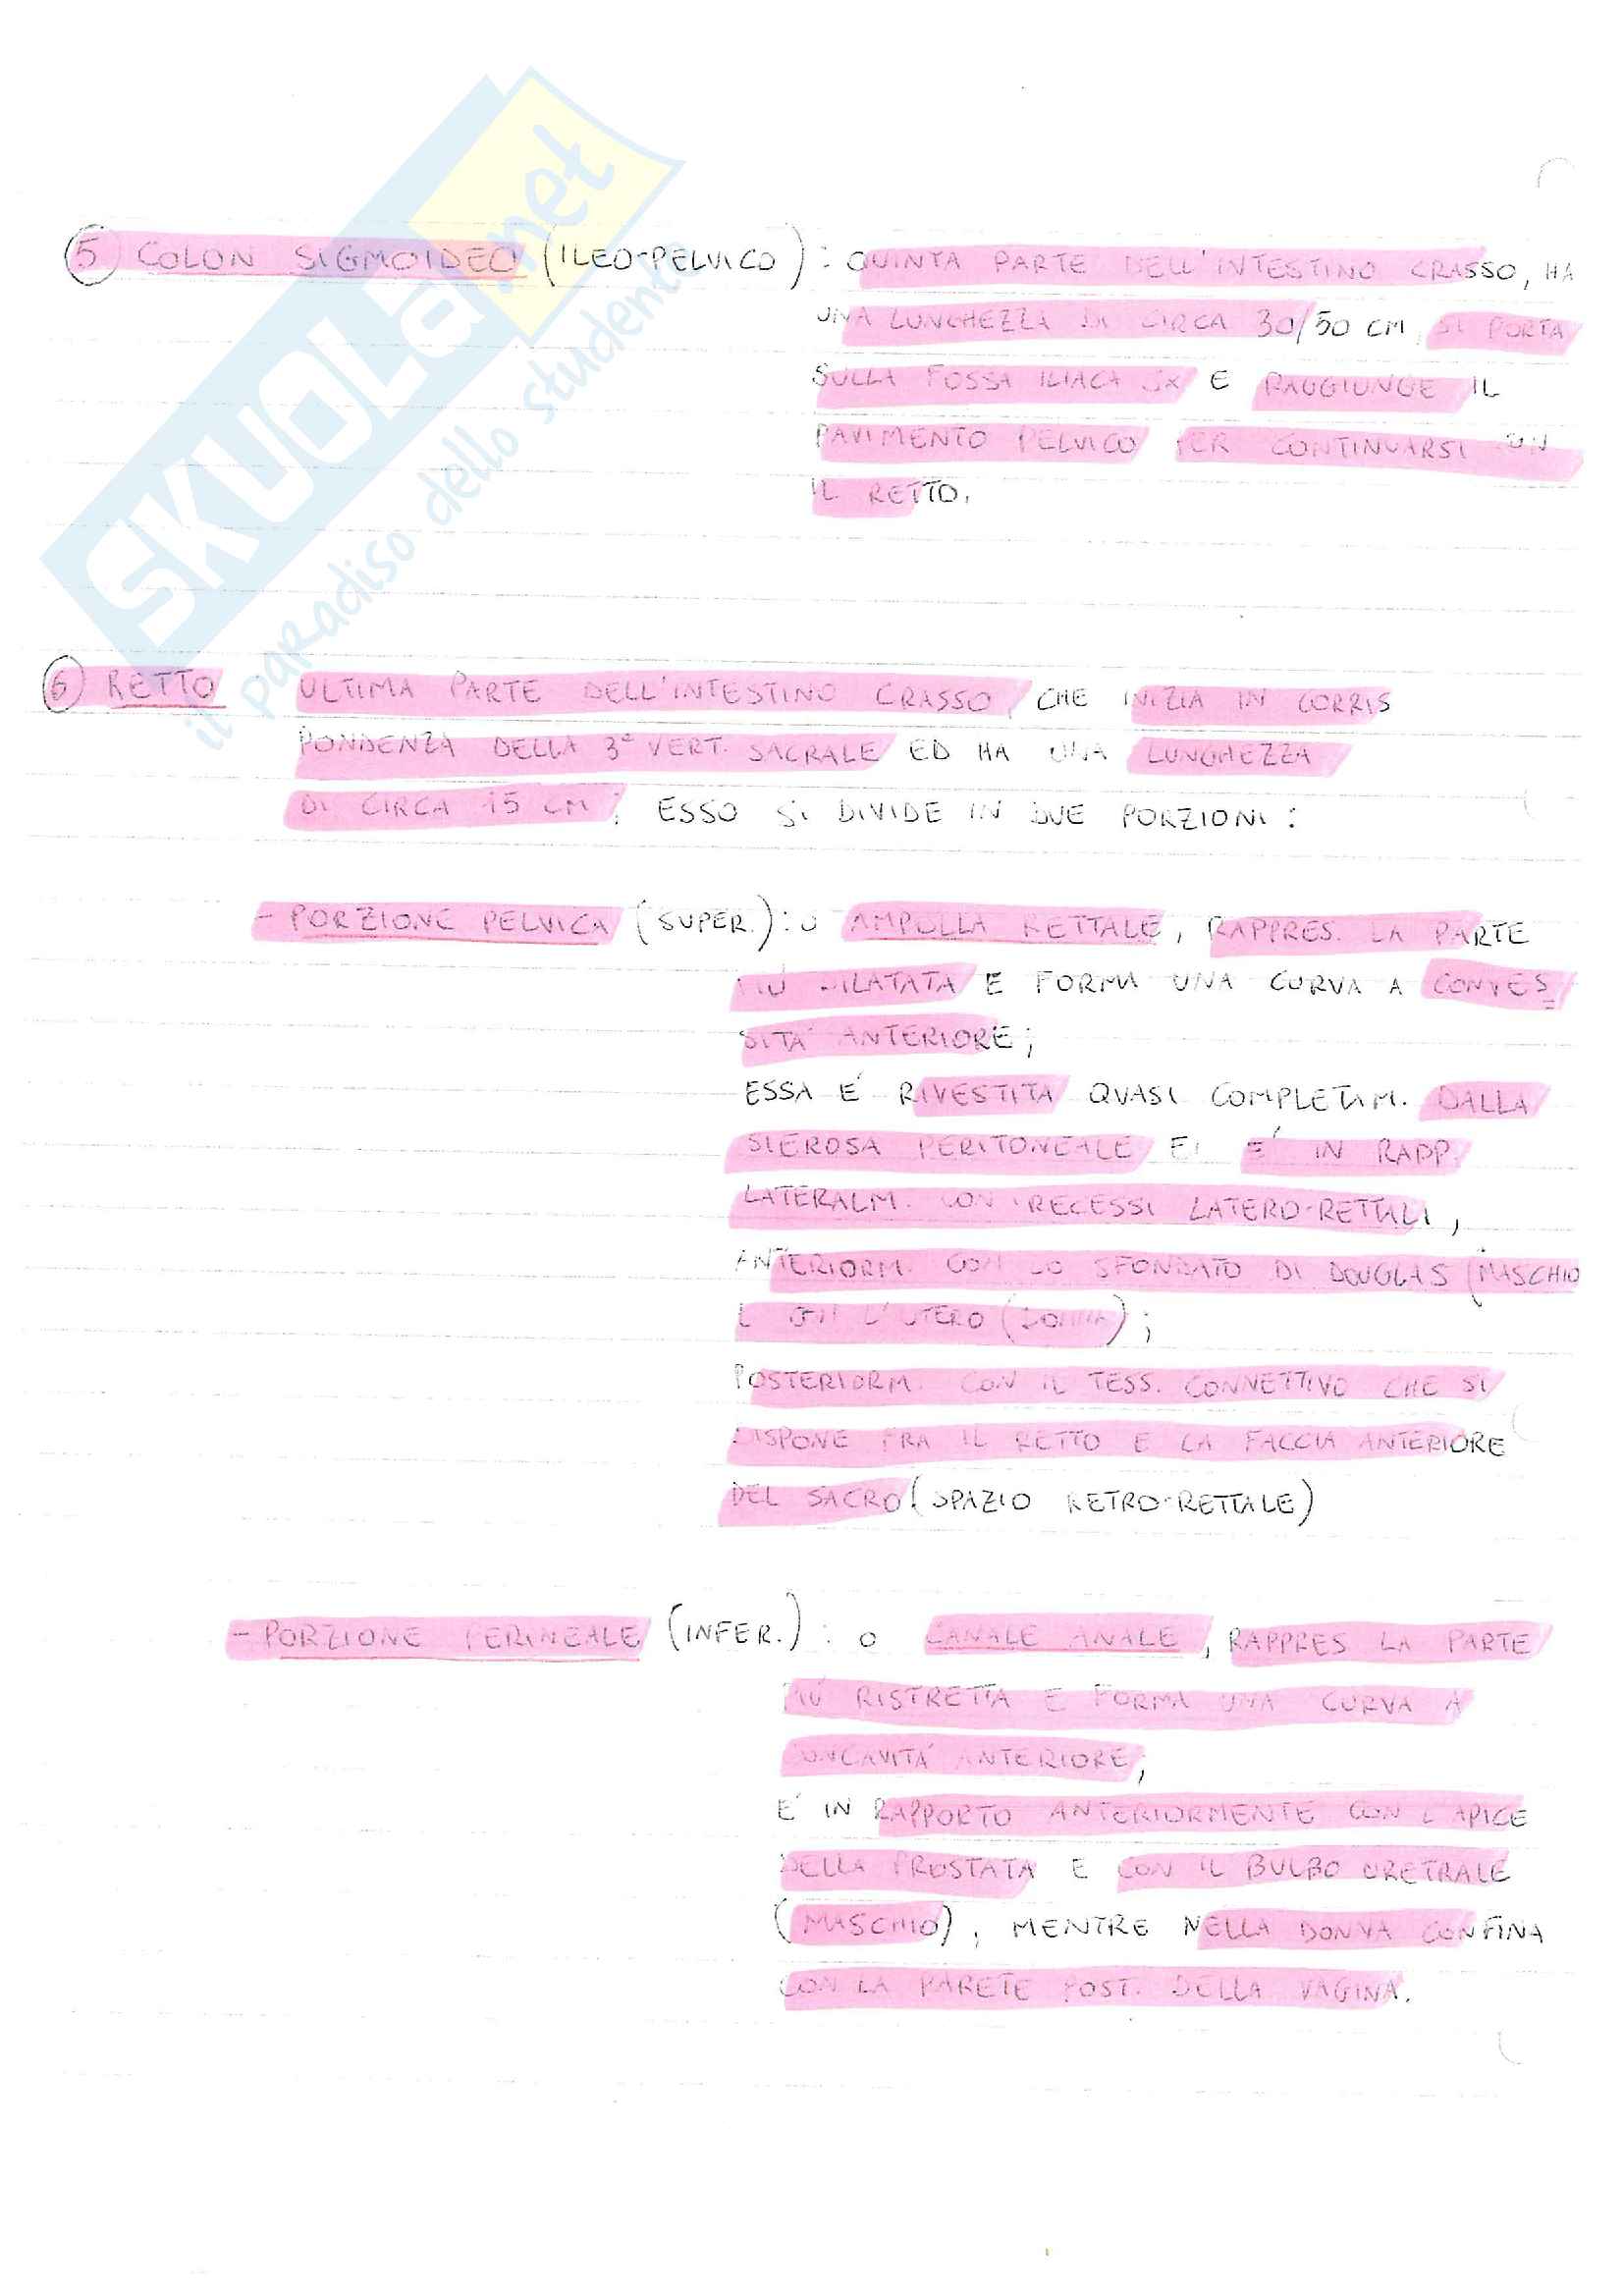 SKUOLA.net
il paradiso dello studente
5 COLON SIGMOIDEO (ILEO-PELVICO): QUINTA PARTE DELL'INTESTINO CRASSO, HA
UNA LUNGHEZZA DI CIRCA 30/50 CM, SI PORTA
SULLA FOSSA ILIACA SX E RAGGIUNGE IL
PAVIMENTO PELVICO PER CONTINUARSI CON
IL RETTO.
6 RETTO : ULTIMA PARTE DELL'INTESTINO CRASSO, CHE INIZIA IN CORRIS
PONDENZA DELLA 3ª VERT. SACRALE ED HA UNA LUNGHEZZA
DI CIRCA 15 CM; ESSO SI DIVIDE IN DUE PORZIONI:
- PORZIONE PELVICA (SUPER.): O AMPOLLA RETTALE, RAPPRES. LA PARTE
PIÙ DILATATA E FORMA UNA CURVA A CONVES
SITÀ ANTERIORE;
ESSA È RIVESTITA QUASI COMPLETAM. DALLA
SIEROSA PERITONEALE ED È IN RAPP.
LATERALM. CON I RECESSI LATERO-RETTALI,
ANTERIORM. CON LO SFONDATO DI DOUGLAS (MASCHIO
E CON L'UTERO (DONNA);
POSTERIORM. CON IL TESS. CONNETTIVO CHE SI
DISPONE FRA IL RETTO E LA FACCIA ANTERIORE
DEL SACRO (SPAZIO RETRO-RETTALE)
- PORZIONE PERINEALE (INFER.): O CANALE ANALE, RAPPRES LA PARTE
PIÙ RISTRETTA E FORMA UNA CURVA A
CONCAVITÀ ANTERIORE;
È IN RAPPORTO ANTERIORMENTE CON L'APICE
DELLA PROSTATA E CON IL BULBO URETRALE
(MASCHIO), MENTRE NELLA DONNA CONFINA
CON LA PARETE POST. DELLA VAGINA.